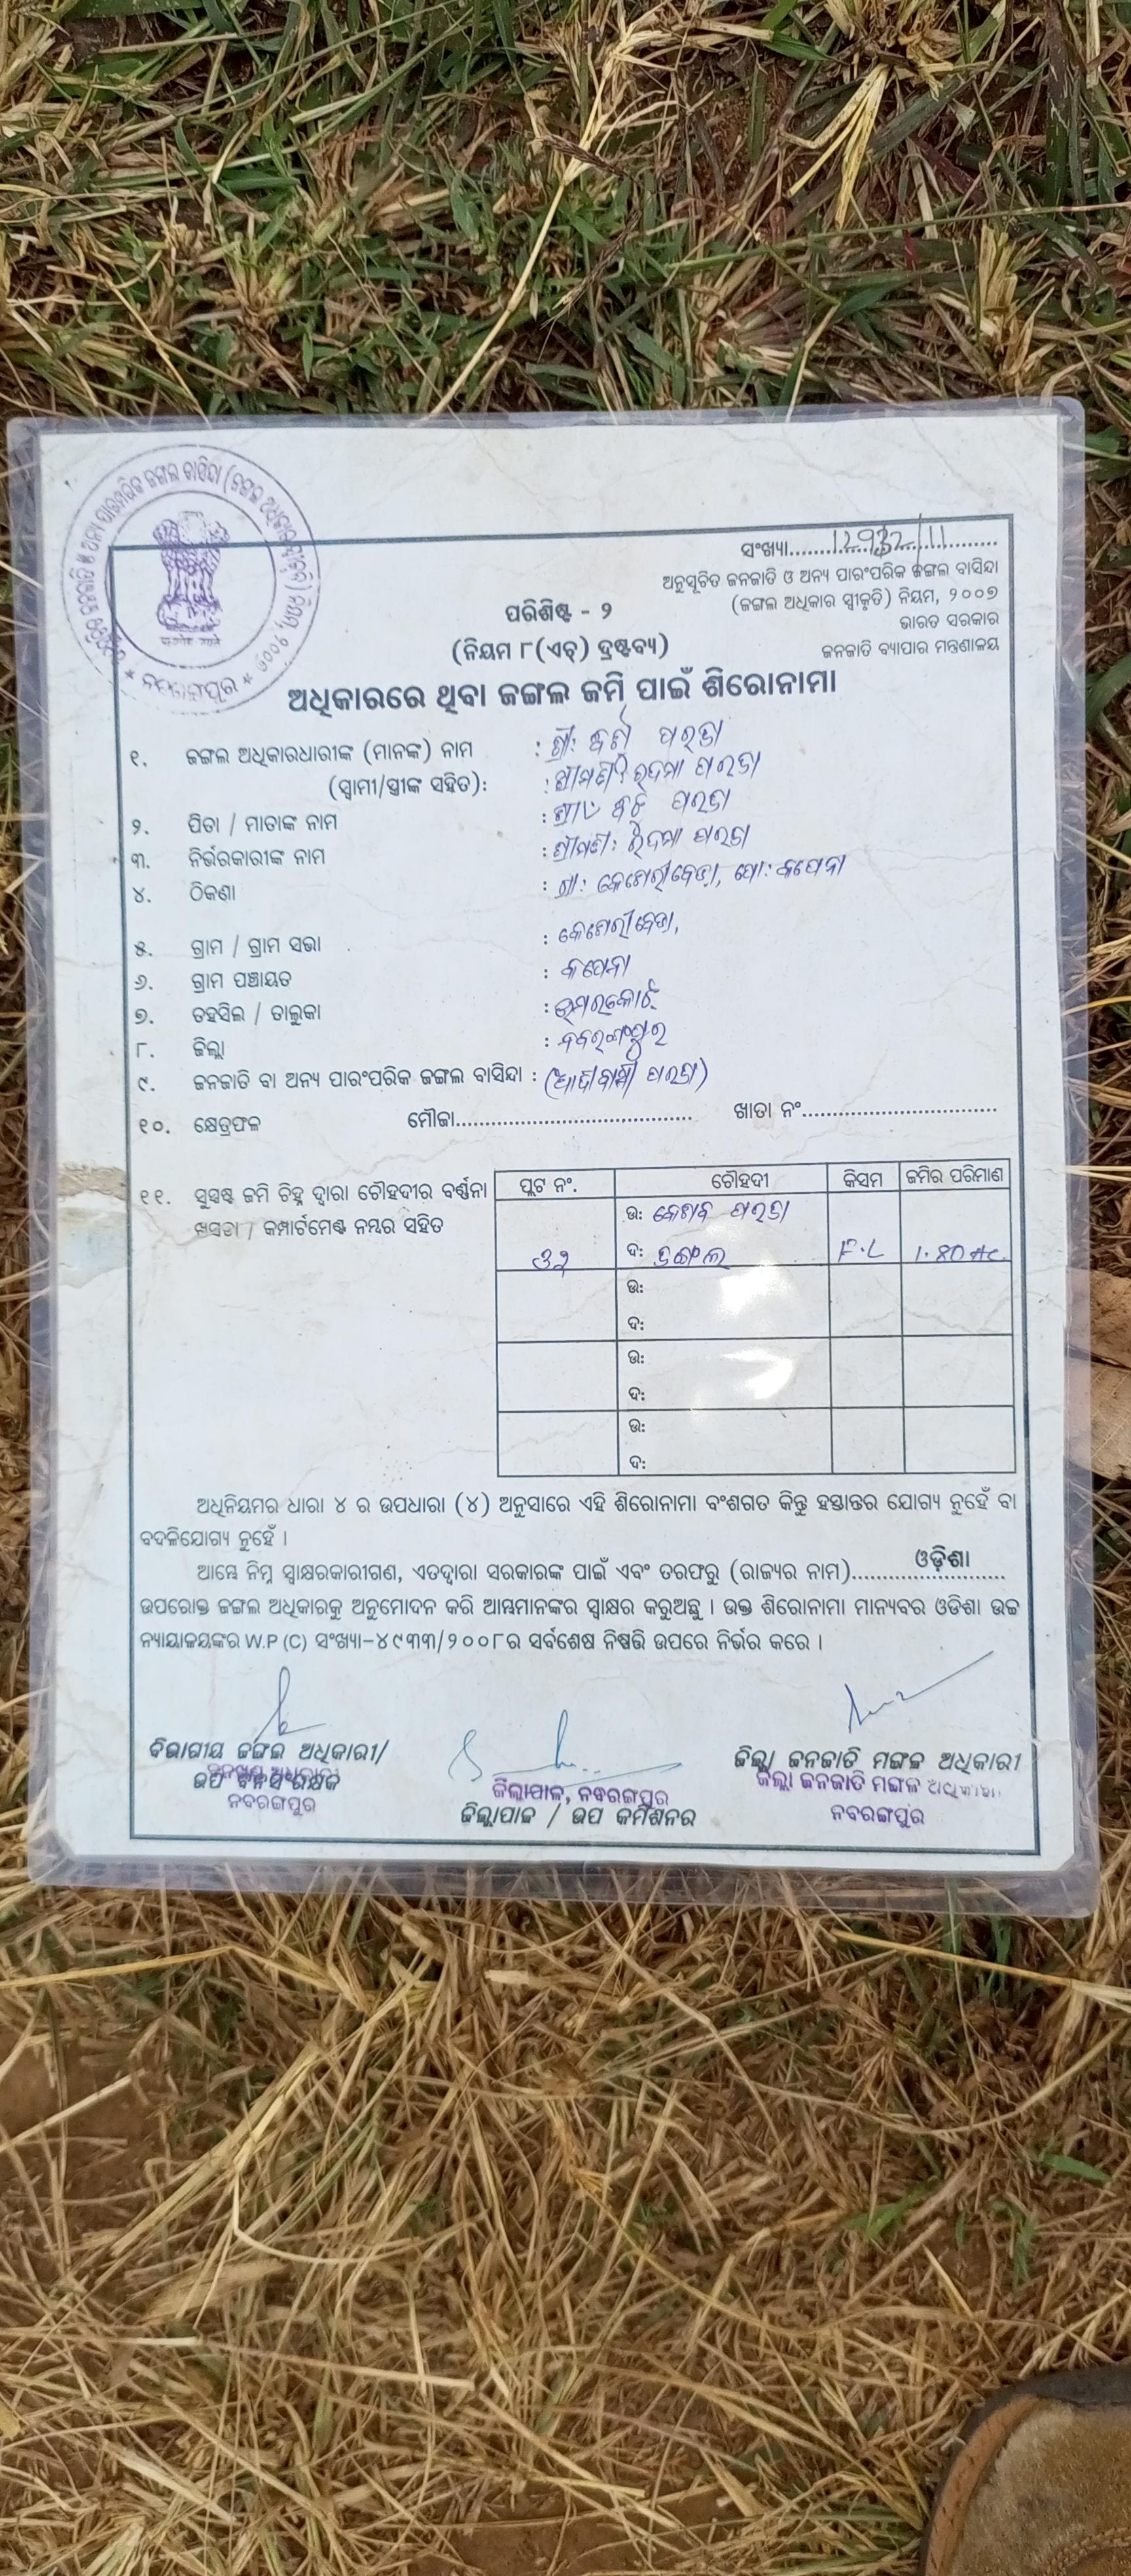 ସଂଖ୍ୟା..........12932/11..........
ଅନୁସୂଚିତ ଜନଜାତି ଓ ଅନ୍ୟ ପାରଂପରିକ ଜଙ୍ଗଲ ବାସିନ୍ଦା
(ଜଙ୍ଗଲ ଅଧିକାର ସ୍ୱୀକୃତି) ନିୟମ, ୨୦୦୭
ଭାରତ ସରକାର
ଜନଜାତି ବ୍ୟାପାର ମନ୍ତ୍ରଣାଳୟ
ପରିଶିଷ୍ଟ - ୨
(ନିୟମ ୮(ଏଚ୍) ଦ୍ରଷ୍ଟବ୍ୟ)
ଅଧିକାରରେ ଥିବା ଜଙ୍ଗଲ ଜମି ପାଇଁ ଶିରୋନାମା
୧. ଜଙ୍ଗଲ ଅଧିକାରଧାରୀଙ୍କ (ମାନଙ୍କ) ନାମ : ଶ୍ରୀ: ପରଜା
(ସ୍ୱାମୀ/ସ୍ତ୍ରୀଙ୍କ ସହିତ): : ଶ୍ରୀମତୀ: ପରଜା
୨. ପିତା / ମାତାଙ୍କ ନାମ : ପରଜା
୩. ନିର୍ଭରକାରୀଙ୍କ ନାମ : ଶ୍ରୀମତୀ: ପରଜା
୪. ଠିକଣା : ଗ୍ରା: ପୋ:
୫. ଗ୍ରାମ / ଗ୍ରାମ ସଭା :
୬. ଗ୍ରାମ ପଞ୍ଚାୟତ :
୭. ତହସିଲ / ତାଲୁକା : ଉମରକୋଟ
୮. ଜିଲ୍ଲା : ନବରଙ୍ଗପୁର
୯. ଜନଜାତି ବା ଅନ୍ୟ ପାରଂପରିକ ଜଙ୍ଗଲ ବାସିନ୍ଦା : (ଆଦିବାସୀ ପରଜା)
୧୦. କ୍ଷେତ୍ରଫଳ ମୌଜା.................................... ଖାତା ନଂ..............................
୧୧. ସୁସ୍ପଷ୍ଟ ଜମି ଚିହ୍ନ ଦ୍ୱାରା ଚୌହଦୀର ବର୍ଣ୍ଣନା
ଖସଡା / କମ୍ପାର୍ଟମେଣ୍ଟ ନମ୍ବର ସହିତ
ପ୍ଲଟ ନଂ. ଚୌହଦୀ କିସମ ଜମିର ପରିମାଣ
ଉ: କେଶବ ପରଜା
ଦ: ଜଙ୍ଗଲ F.L 1.80 Ac.
ଉ:
ଦ:
ଉ:
ଦ:
ଉ:
ଦ:
ଅଧିନିୟମର ଧାରା ୪ ର ଉପଧାରା (୪) ଅନୁସାରେ ଏହି ଶିରୋନାମା ବଂଶଗତ କିନ୍ତୁ ହସ୍ତାନ୍ତର ଯୋଗ୍ୟ ନୁହେଁ ବା
ବଦଳିଯୋଗ୍ୟ ନୁହେଁ ।
ଆମ୍ଭେ ନିମ୍ନ ସ୍ୱାକ୍ଷରକାରୀଗଣ, ଏତଦ୍ୱାରା ସରକାରଙ୍କ ପାଇଁ ଏବଂ ତରଫରୁ (ରାଜ୍ୟର ନାମ)..........ଓଡ଼ିଶା..........
ଉପରୋକ୍ତ ଜଙ୍ଗଲ ଅଧିକାରକୁ ଅନୁମୋଦନ କରି ଆମ୍ଭମାନଙ୍କର ସ୍ୱାକ୍ଷର କରୁଅଛୁ । ଉକ୍ତ ଶିରୋନାମା ମାନ୍ୟବର ଓଡିଶା ଉଚ୍ଚ
ନ୍ୟାୟାଳୟଙ୍କର W.P (C) ସଂଖ୍ୟା-୪୯୩୩/୨୦୦୮ର ସର୍ବଶେଷ ନିଷ୍ପତ୍ତି ଉପରେ ନିର୍ଭର କରେ ।
ବିଭାଗୀୟ ଜଙ୍ଗଲ ଅଧିକାରୀ/
ଉପ ବନସଂରକ୍ଷକ
ନବରଙ୍ଗପୁର
ଜିଲ୍ଲାପାଳ, ନବରଙ୍ଗପୁର
ଜିଲ୍ଲାପାଳ / ଉପ କମିଶନର
ଜିଲ୍ଲା ଜନଜାତି ମଙ୍ଗଳ ଅଧିକାରୀ
ଜିଲ୍ଲା ଜନଜାତି ମଙ୍ଗଳ ଅଧିକାରୀ
ନବରଙ୍ଗପୁର